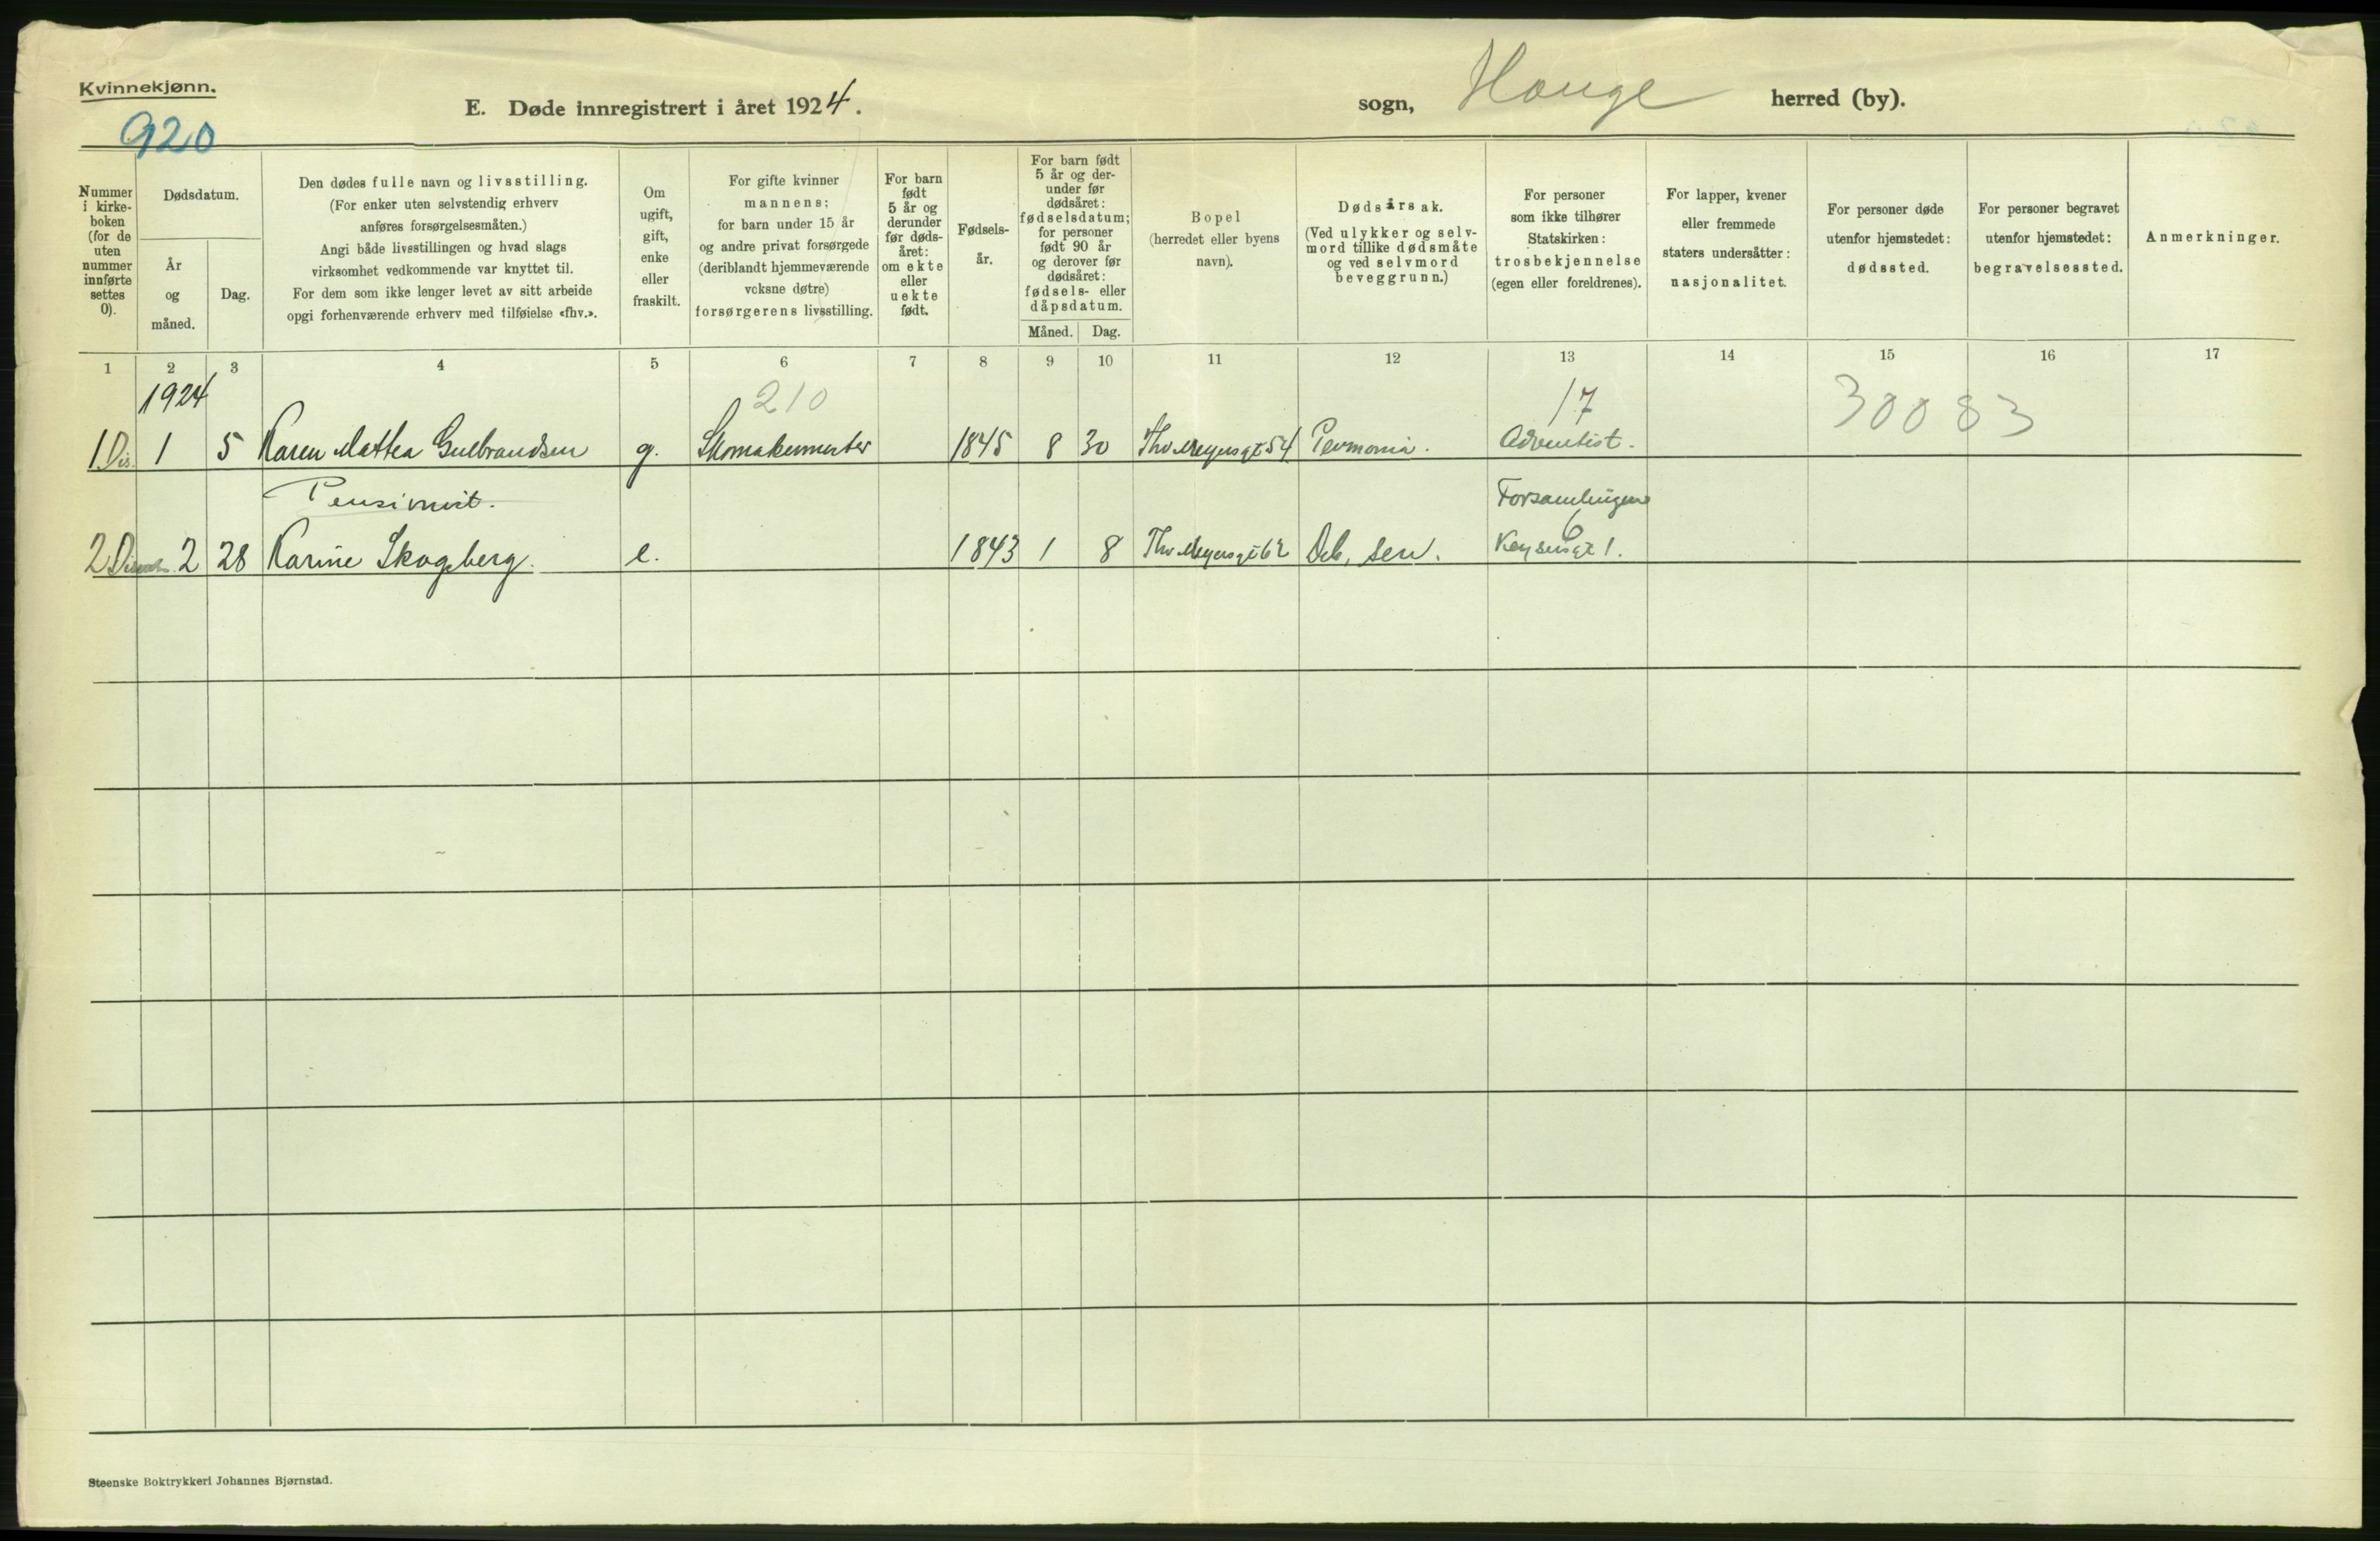 Kvinnekjønn.
920
E. Døde innregistrert i året 1924.
sogn, Hauge herred (by).
Nummer i kirke-boken (for de uten nummer innførte settes 0).
Dødsdatum.
År og måned.
Dag.
Den dødes fulle navn og livsstilling.
(For enker uten selvstendig erhverv
anføres forsørgelsesmåten.)
Angi både livsstillingen og hvad slags
virksomhet vedkommende var knyttet til.
For dem som ikke lenger levet av sitt arbeide
opgi forhenværende erhverv med tilføielse «fhv.».
Om
ugift,
gift,
enke
eller
fraskilt.
For gifte kvinner
mannens;
for barn under 15 år
og andre privat forsørgede
(deriblandt hjemmeværende
voksne døtre)
forsørgerens livsstilling.
For barn
født
5 år og
derunder
før døds-
året:
om ekte
eller
uekte
født.
Fødsels-
år.
For barn født
5 år og der-
under før
dødsåret:
fødselsdatum;
for personer
født 90 år
og derover før
dødsåret:
fødsels- eller
dåpsdatum.
Måned. Dag.
Bopel
(herredet eller byens
navn).
Dødsårsak.
(Ved ulykker og selv-
mord tillike dødsmåte
og ved selvmord
beveggrunn.)
For personer
som ikke tilhører
Statskirken:
trosbekjennelse
(egen eller foreldrenes).
For lapper, kvener
eller fremmede
staters undersåtter:
nasjonalitet.
For personer døde
utenfor hjemstedet:
dødssted.
For personer begravet
utenfor hjemstedet:
begravelsessted.
Anmerkninger.
1 2 3 4 5 6 7 8 9 10 11 12 13 14 15 16 17
1924 210 17 30083
1 Dis. 1 5 Karen Mathea Gulbrandsen g. Skomakermester 1845 8 30 Thv. Meyersgt 54 Pevmoni. Adventist.
Pensionist. Forsamlingen
6
2 2 28 Karine Skogberg. e. 1843 1 8 Thv. Meyersgt 62 Deb. sen. Keysersgt 1.
Steenske Boktrykkeri Johannes Bjørnstad.